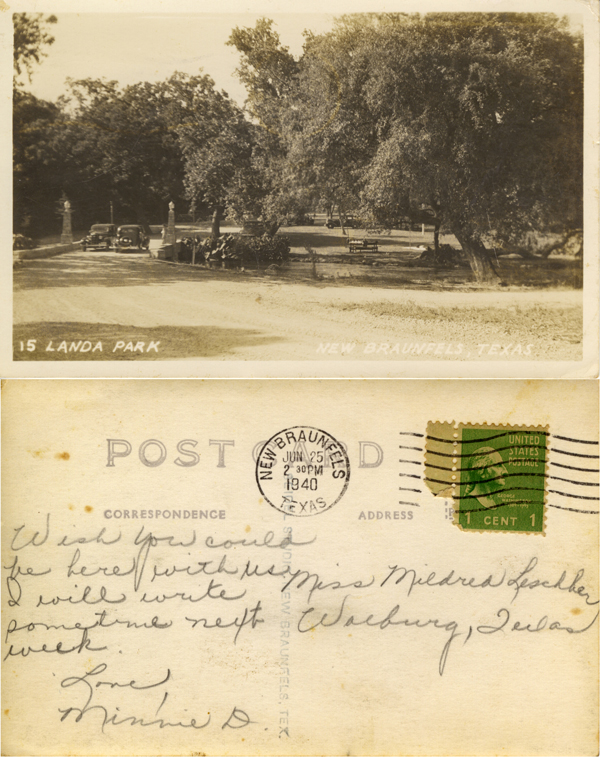 15 LANDA PARK
NEW BRAUNFELS, TEXAS
POST CARD
NEW BRAUNFELS
JUN 25
2 30 PM
1940
TEXAS
UNITED
STATES
POSTAGE
GEORGE
1 CENT 1
CORRESPONDENCE
ADDRESS
Wish you could
be here with us.
I will write
sometime next
week.
Love,
Minnie D.
Miss Mildred Leschber
Walburg, Texas
NEW BRAUNFELS, TEX.